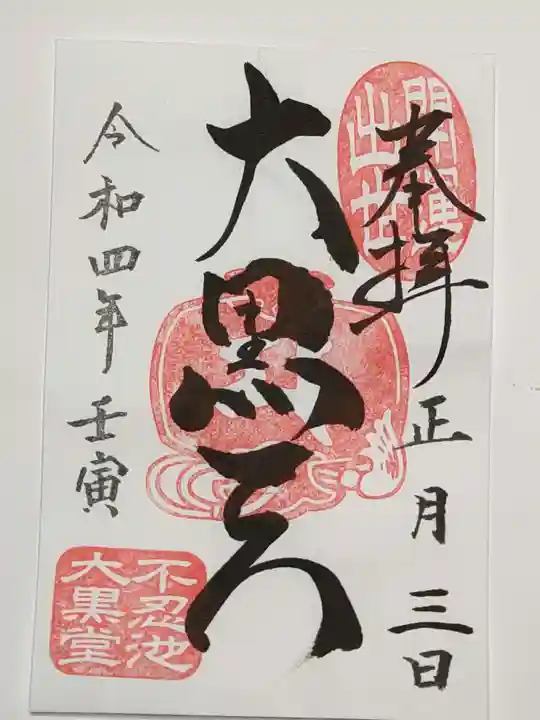 開運
出世
奉拝
正月三日
大黒天
令和四年壬寅
不忍池
大黒堂